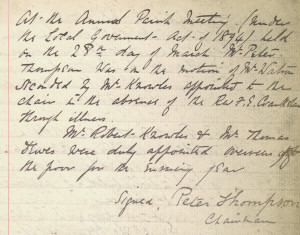 At the Annual Parish Meeting (under
the Local Government Act of 1894) held
on the 28th day of March Mr Peter
Thompson was on the motion of Mr Watson
seconded by Mr Knowles appointed to the
chair in the absence of the Rev F. E.
through illness.
Mr Robert Knowles & Mr Thomas
were duly appointed overseers of
the poor for the ensuing year
Signed, Peter Thompson
Chairman